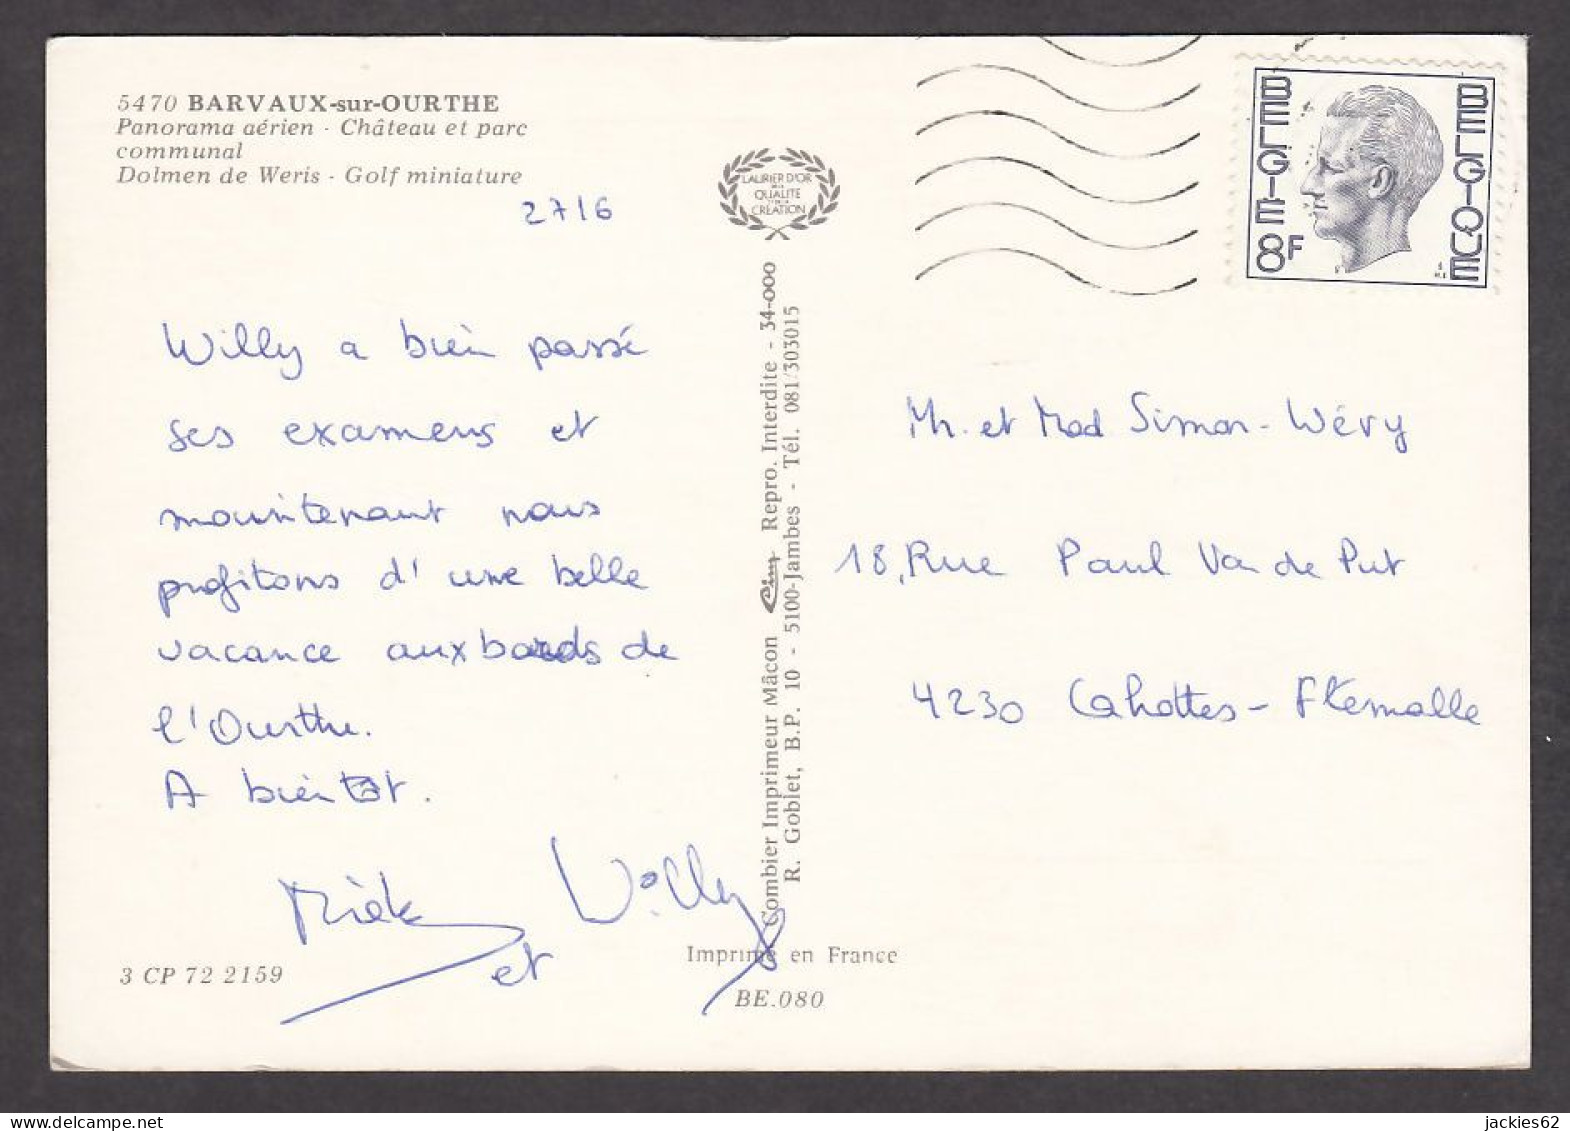 5470 BARVAUX-sur-OURTHE
Panorama aérien - Château et parc
communal
Dolmen de Weris - Golf miniature
2716
Willy a bien passé
ses examens et
maintenant nous
profitons d'une belle
vacance aux bords de
l'Ourthe.
A bientôt.
et Willy
3 CP 72 2159
LAURIER D'OR
QUALITE
CREATION
Combier Imprimeur Mâcon Cim Repro. Interdite - 34-000
R. Goblet, B.P. 10 - 5100-Jambes - Tél. 081/303015
Imprimé en France
BE.080
BELGIE 8F BELGIQUE
Mr. et Mad Simon-Wéry
18, Rue Paul Van de Put
4230 Cahottes - Flemalle
delcampe.net
jackies62